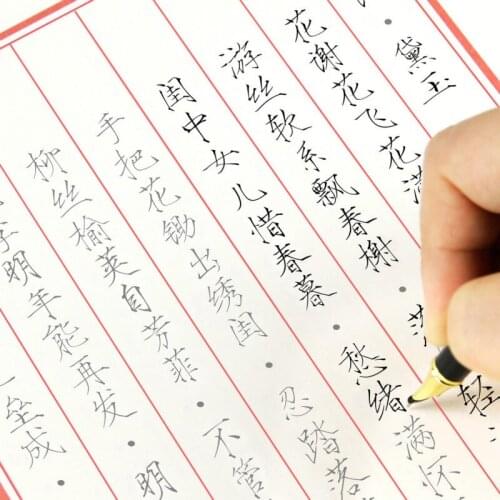 ·黛玉
花谢花飞花满
游丝软系飘春榭·落 轻
闺中女儿惜春暮·愁绪满怀
手把花锄出绣闺·忍踏落
柳丝榆荚自芳菲·不管
李明年能再发·明
垒成